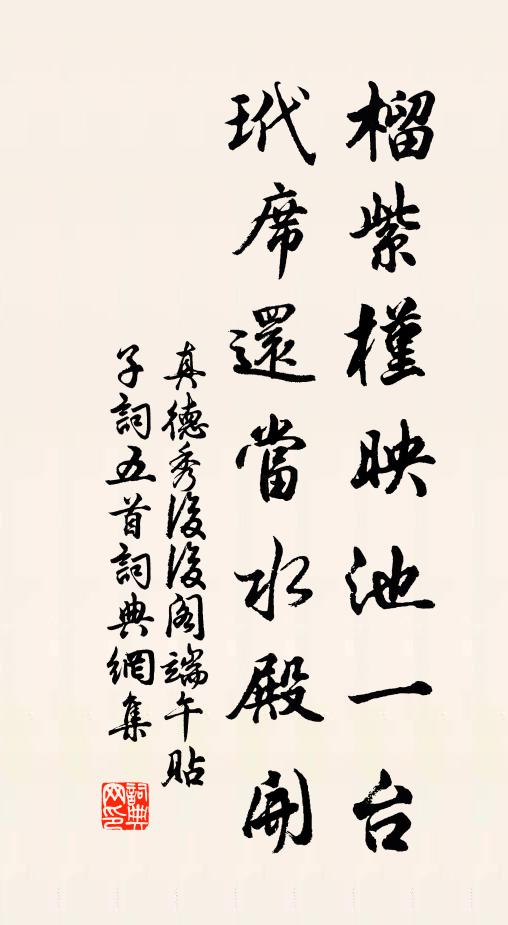 榴紫槿映池一台
玳席還當水殿開
真德秀後後阁端午貼
子詞五首詞典網集
詞典
网印